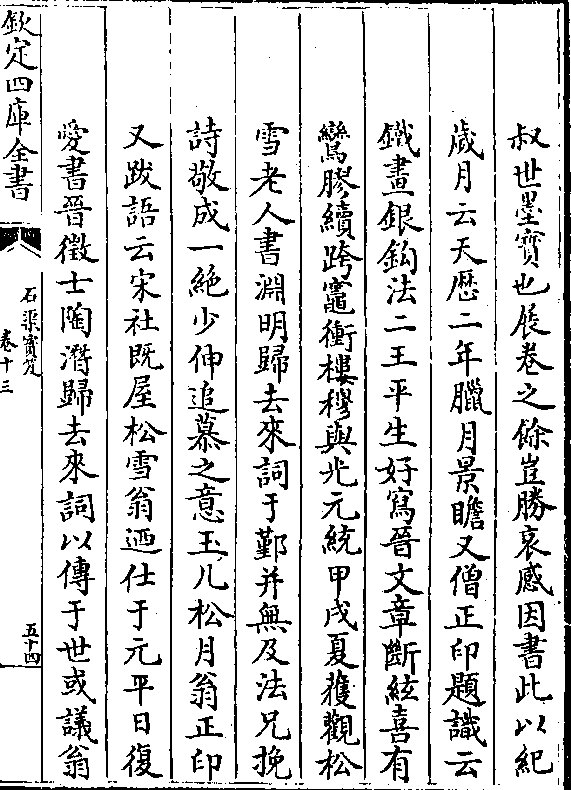 叔世墨寳也展卷之餘豈勝哀感因書此以紀
歲月云天歷二年臘月景瞻又僧正印題識云
鐵畫銀鈎法二王平生好寫晉文章斷絃喜有
鸞膠續跨竈衝樓穆與光元統甲戌夏獲觀松
雪老人書淵明歸去來詞于鄞并無及法兄挽
詩敬成一絶少伸追慕之意玉几松月翁正印
又跋語云宋社既屋松雪翁迺仕于元平日復
愛書晉徵士陶潛歸去來詞以傳于世或議翁
欽定四庫全書
石渠寳笈
卷十三
五十四